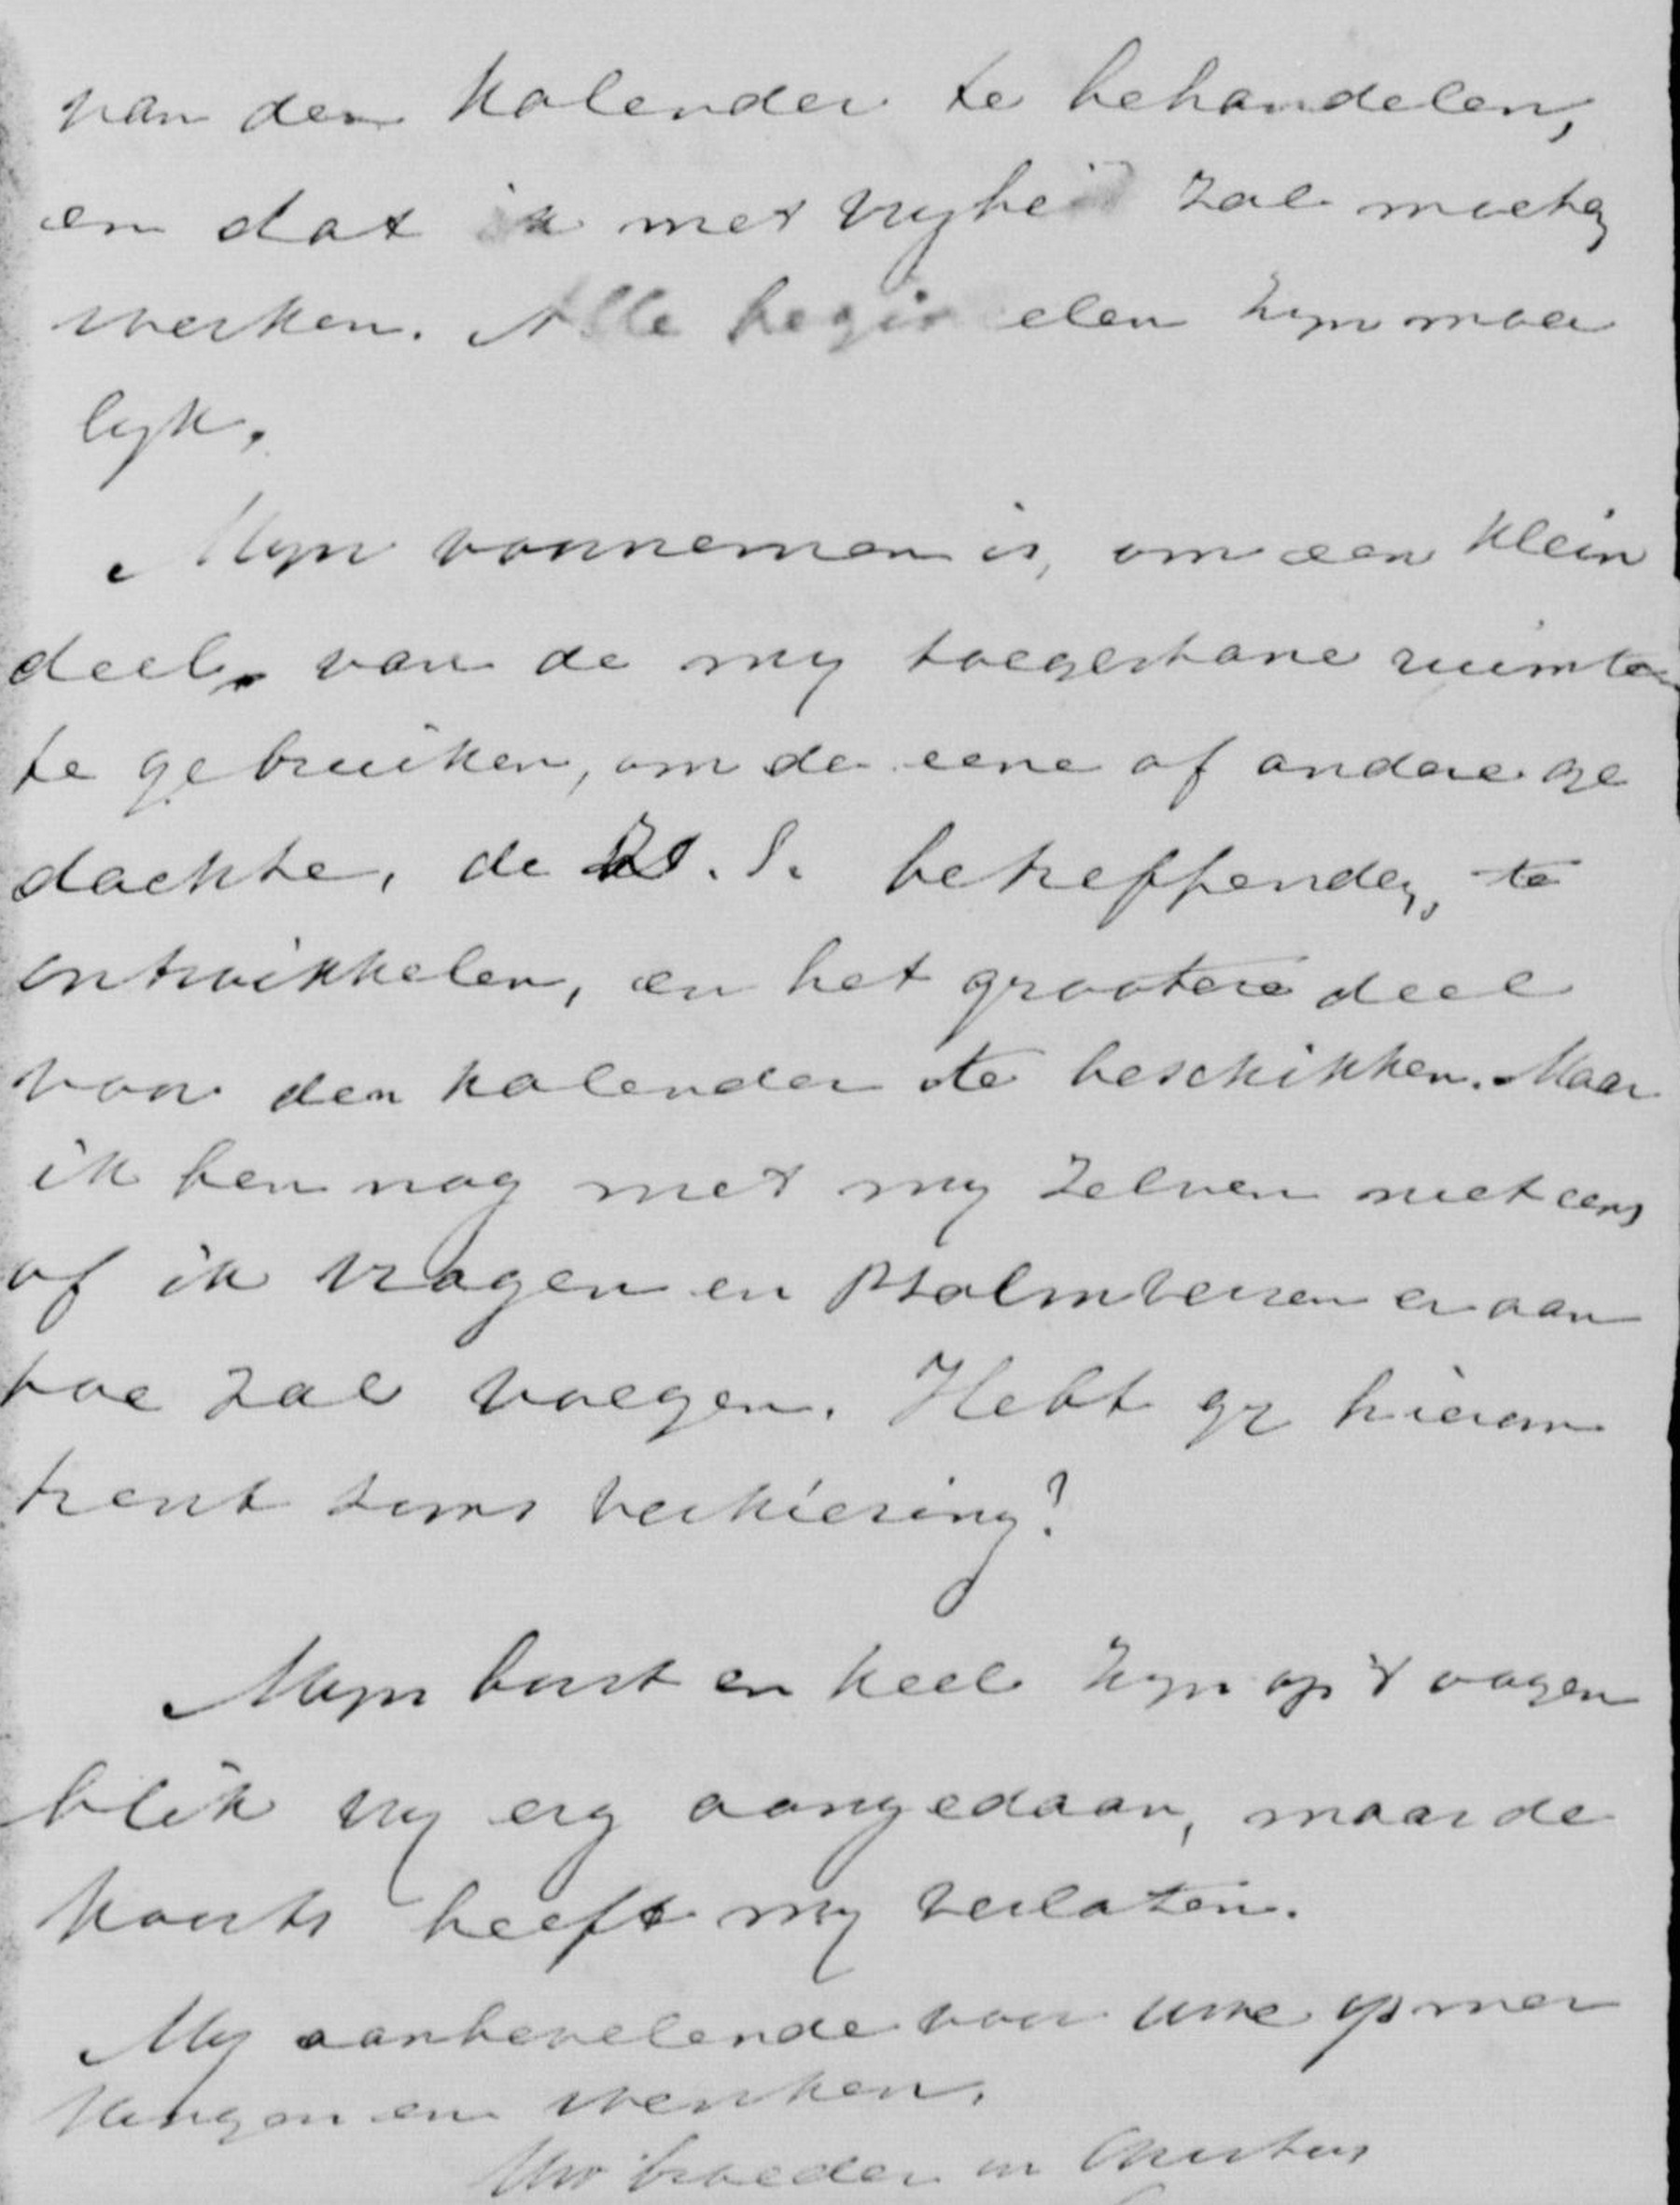 van den Kalender te behandelen,
en dat ik met vryheid zal moeten
werken. Alle beginselen zyn moei
lyk.
Myn voornemen is, om een klein
deel van de my toegestane ruimte
te gebruiken, om de eene of andere ge
dachte, de Z. S. betreffende, te
ontwikkelen, en het grootere deel
voor den kalender te beschikken. Maar
ik ben nog met my zelven niet eens
of ik vragen en Psalmverzen er aan
toe zal voegen. Hebt gy hierom
trent soms verkiezing?
Myn borst en keel zyn op 't oogen
blik vry erg aangedaan, maar de
koorts heeft my verlaten.
My aanbevelende voor uwe opmer
kingen en wenken,
Uw broeder in Christus